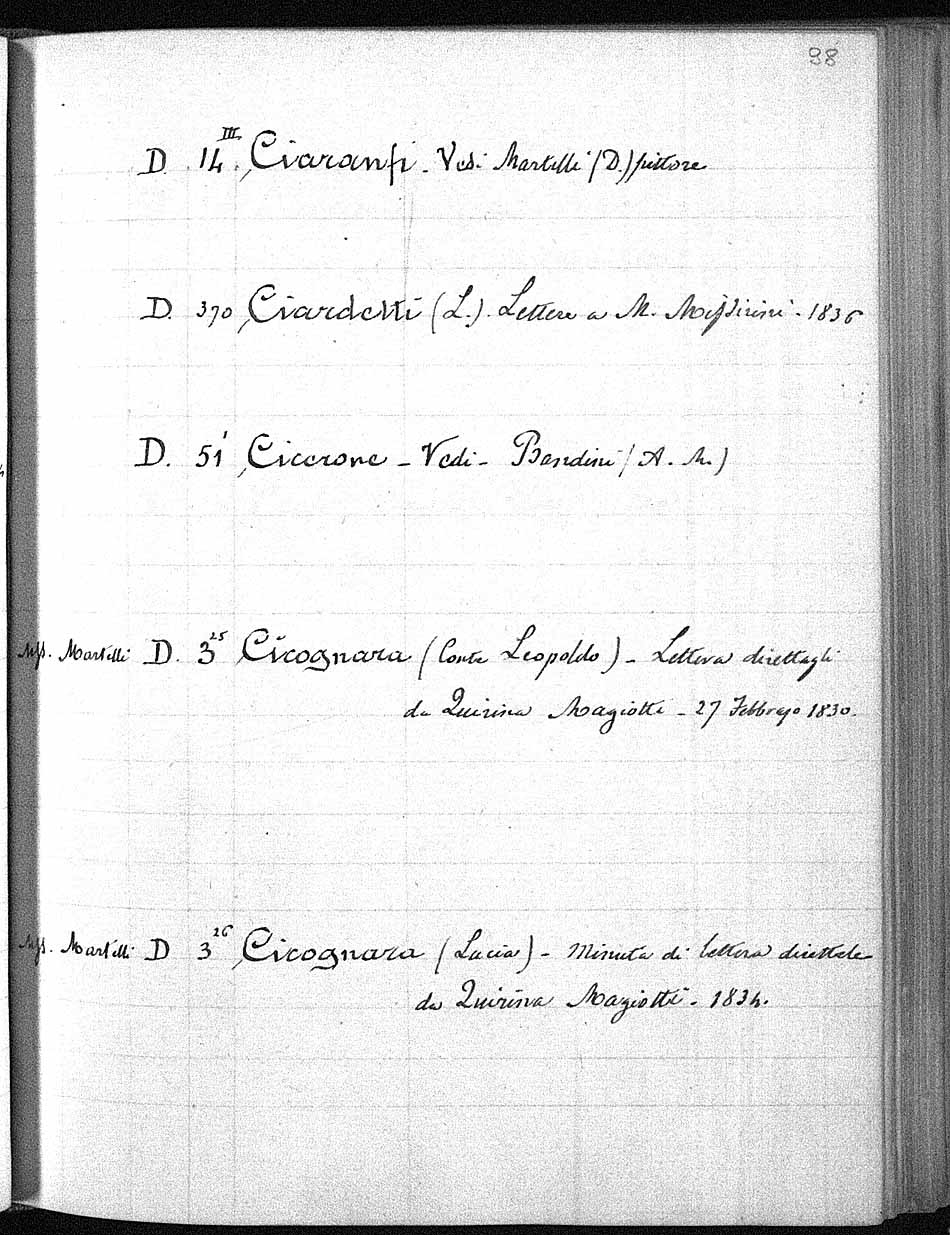 98
D. 14.III Ciaranfi - Vedi Martelli (D.) pittore
D. 370 Ciardetti (L.). Lettere a M. Missirini - 1836
D. 51' Cicerone - Vedi - Bandini (A. M.)
Mss. Martelli D. 3 25 Cicognara (Conte Leopoldo) - Lettera direttagli
da Quirina Magiotti - 27 Febbrajo 1830.
Mss. Martelli D 3 26 Cicognara (Lucia) - Minuta di lettera direttale
da Quirina Magiotti - 1834.